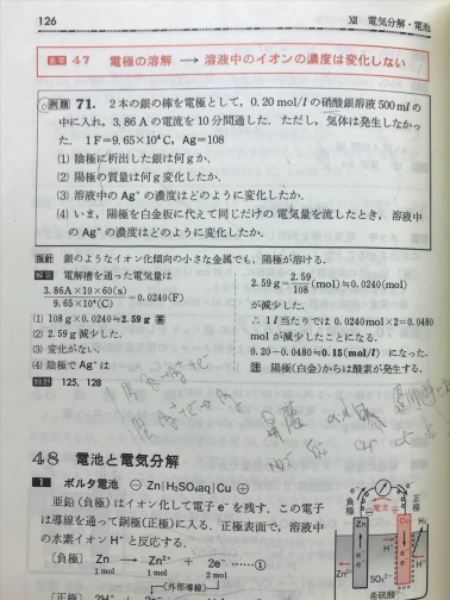 126
XII 電気分解・電池
重要 47 電極の溶解 → 溶液中のイオンの濃度は変化しない
例題 71. 2本の銀の棒を電極として，0.20 mol/l の硝酸銀溶液 500 ml の
中に入れ，3.86 A の電流を 10 分間通した．ただし，気体は発生しなかっ
た． 1 F=9.65×10⁴ C，Ag=108
(1) 陰極に析出した銀は何 g か．
(2) 陽極の質量は何 g 変化したか．
(3) 溶液中の Ag⁺ の濃度はどのように変化したか．
(4) いま，陽極を白金板に代えて同じだけの電気量を流したとき，溶液中
の Ag⁺ の濃度はどのように変化したか．
指針 銀のようなイオン化傾向の小さな金属でも，陽極が溶ける．
解答 電解槽を通った電気量は
3.86A×10×60(s)/9.65×10⁴(C)=0.0240(F)
(1) 108 g×0.0240≒2.59 g 答
(2) 2.59 g 減少した．
(3) 変化がない．
(4) 陰極で Ag⁺ は
2.59 g=2.59/108(mol)≒0.0240(mol)
が減少した．
∴ 1 l 当たりでは 0.0240 mol×2=0.0480
mol が減少したことになる．
0.20−0.0480≒0.15(mol/l) になった．
注 陽極(白金)からは酸素が発生する．
125，128
48 電池と電気分解
1 ボルタ電池 ⊖ Zn|H₂SO₄aq|Cu ⊕
亜鉛（負極）はイオン化して電子 e⁻ を残す．この電子
は導線を通って銅極(正極)に入る．正極表面で，溶液中
の水素イオン H⁺ と反応する．
〔負極〕 Zn → Zn²⁺ + 2e⁻ ……①
1 mol 1 mol 2 mol
(外部導線)
〔正極〕 2H⁺
負極
正極
電流
Zn
Cu
H₂
e⁻
e⁻
H⁺
H⁺
Zn²⁺
SO₄²⁻
希硫酸